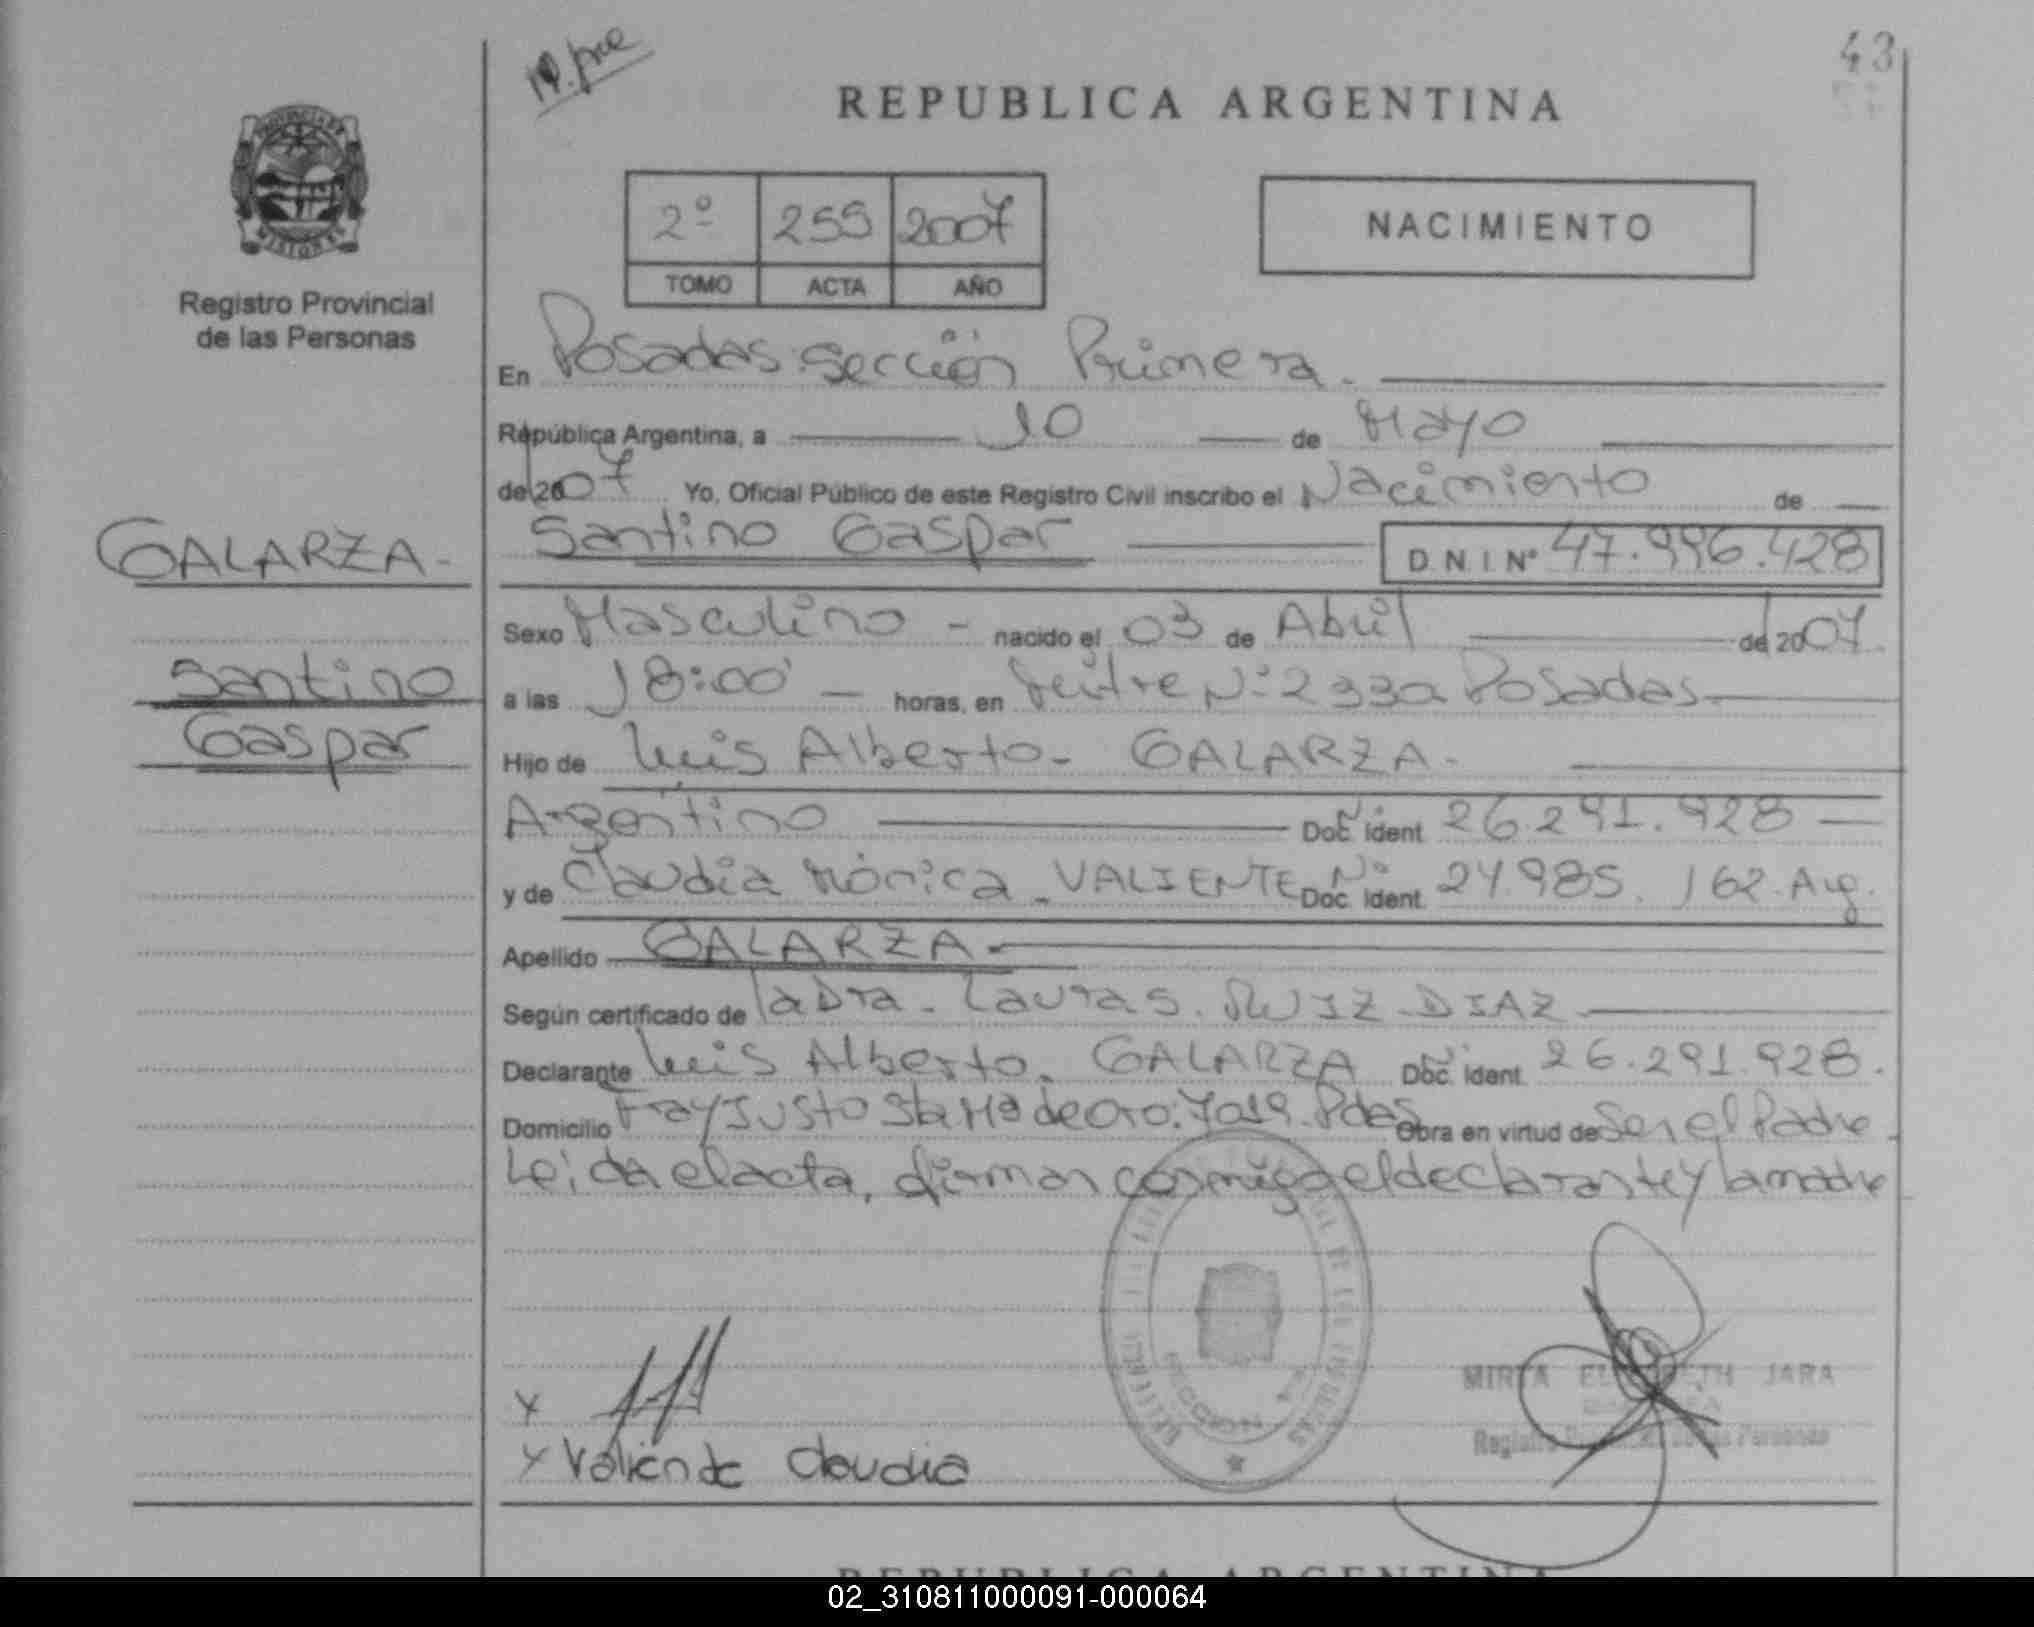 43
REPUBLICA ARGENTINA
PROVINCIA DE
MISIONES
Registro Provincial
de las Personas
2º 255 2007
TOMO ACTA AÑO
NACIMIENTO
En Posadas sección Primera.
República Argentina, a 10 de Mayo
de 2007 Yo, Oficial Público de este Registro Civil inscribo el Nacimiento de
GALARZA-
Santino Gaspar D.N.I Nº 47.996.428
Sexo Masculino - nacido el 03 de Abril de 2007.
Santino
a las 18:00 horas, en Nº 2330 Posadas
Gaspar
Hijo de Luis Alberto- GALARZA.
Argentino Doc. ident. 26.291.928
y de Claudia Mónica - VALIENTE Nº Doc. ident. 24.985.162. Arg.
Apellido GALARZA-
Según certificado de la Dra. Laura S. RUIZ DIAZ
Declarante Luis Alberto. GALARZA Doc. ident. 26.291.928.
Domicilio Fray Justo Sta Mª de Oro: 7019. Pdas Obra en virtud de Ser el Padre.
Leida el acta, firman conmigo el declarante y la madre
SECCION
MIRTA ELIZABETH JARA
Registro Provincial de las Personas
x
x Valiente Claudia
REPUBLICA ARGENTINA
02_310811000091-000064